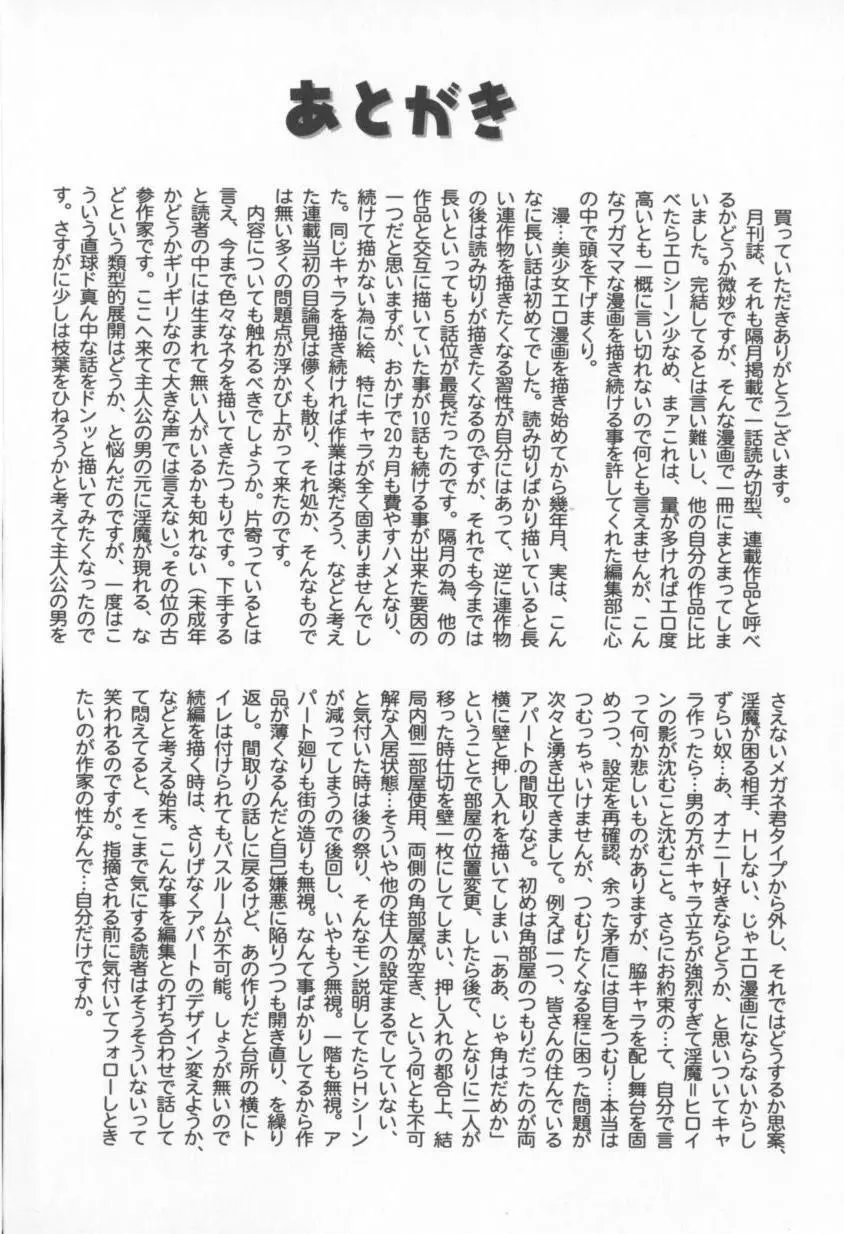 あとがき
買っていただきありがとうございます。
月刊誌、それも隔月掲載で一話読み切型、連載作品と呼べ
るかどうか微妙ですが、そんな漫画で一冊にまとまってしま
いました。完結してるとは言い難いし、他の自分の作品に比
べたらエロシーン少なめ、まァこれは、量が多ければエロ度
高いとも一概に言い切れないので何とも言えませんが、こん
なワガママな漫画を描き続ける事を許してくれた編集部に心
の中で頭を下げまくり。
漫…美少女エロ漫画を描き始めてから幾年月、実は、こん
なに長い話は初めてでした。読み切りばかり描いていると長
い連作物を描きたくなる習性が自分にはあって、逆に連作物
の後は読み切りが描きたくなるのですが、それでも今までは
長いといっても5話位が最長だったのです。隔月の為、他の
作品と交互に描いていた事が10話も続ける事が出来た要因の
一つだと思いますが、おかげで20カ月も費やすハメとなり、
続けて描かない為に絵、特にキャラが全く固まりませんでし
た。同じキャラを描き続ければ作業は楽だろう、などと考え
た連載当初の目論見は儚くも散り、それ処か、そんなもので
は無い多くの問題点が浮かび上がって来たのです。
内容についても触れるべきでしょうか。片寄っているとは
言え、今まで色々なネタを描いてきたつもりです。下手する
と読者の中には生まれて無い人がいるかも知れない(未成年
かどうかギリギリなので大きな声では言えない)。その位の古
参作家です。ここへ来て主人公の男の元に淫魔が現れる、な
どという類型的展開はどうか、と悩んだのですが、一度はこ
ういう直球ド真ん中な話をドンッと描いてみたくなったので
す。さすがに少しは枝葉をひねろうかと考えて主人公の男を
さえないメガネ君タイプから外し、それではどうするか思案、
淫魔が困る相手、Hしない、じゃエロ漫画にならないからし
ずらい奴…あ、オナニー好きならどうか、と思いついてキャ
ラ作ったら…男の方がキャラ立ちが強烈すぎて淫魔＝ヒロイ
ンの影が沈むこと沈むこと。さらにお約束の…て、自分で言
って何か悲しいものがありますが、脇キャラを配し舞台を固
めつつ、設定を再確認、余った矛盾には目をつむり…本当は
つむっちゃいけませんが、つむりたくなる程に困った問題が
次々と湧き出てきまして。例えば一つ、皆さんの住んでいる
アパートの間取りなど。初めは角部屋のつもりだったのが両
横に壁と押し入れを描いてしまい「ああ、じゃ角はだめか」
ということで部屋の位置変更、したら後で、となりに二人が
移った時仕切を壁一枚にしてしまい、押し入れの都合上、結
局内側二部屋使用、両側の角部屋が空き、という何とも不可
解な入居状態…そういや他の住人の設定まるでしていない、
と気付いた時は後の祭り、そんなモン説明してたらHシーン
が減ってしまうので後回し、いやもう無視。一階も無視。ア
パート廻りも街の造りも無視。なんて事ばかりしてるから作
品が薄くなるんだと自己嫌悪に陥りつつも開き直り、を繰り
返し。間取りの話しに戻るけど、あの作りだと台所の横にト
イレは付けられてもバスルームが不可能。しょうが無いので
続編を描く時は、さりげなくアパートのデザイン変えようか、
などと考える始末。こんな事を編集との打ち合わせで話して
て悶えてると、そこまで気にする読者はそうそういないって
笑われるのですが。指摘される前に気付いてフォローしとき
たいのが作家の性なんで…自分だけですか。